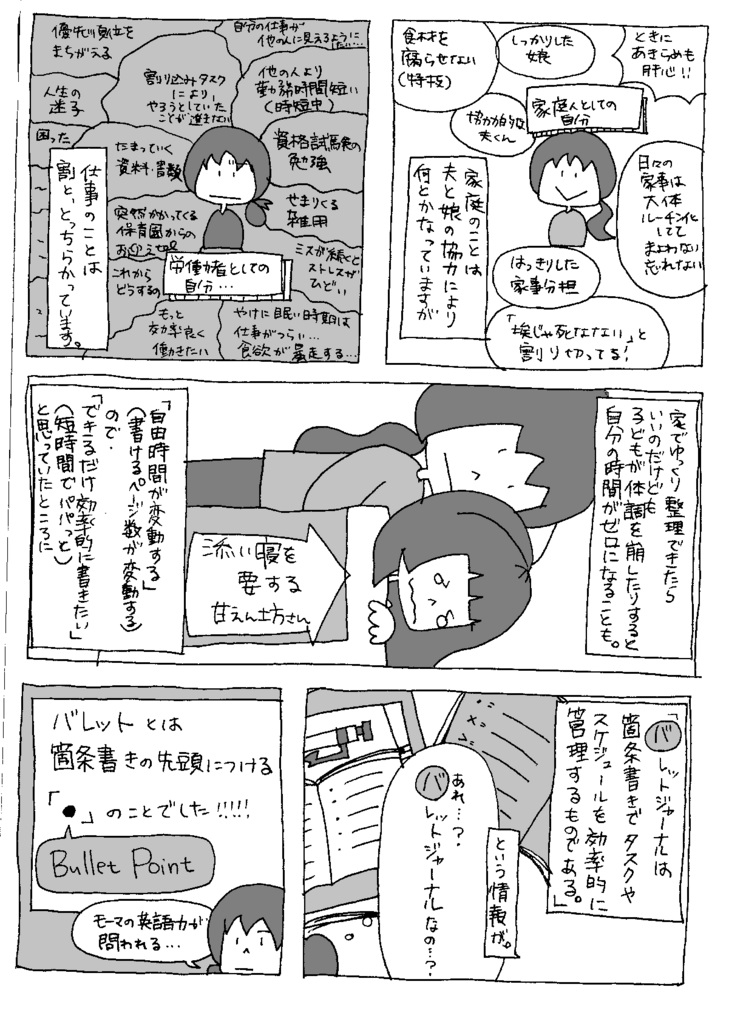 家庭のことは
夫と娘の協力により
何とかなっていますが
ときに
あきらめも
肝心!!
しっかりした
娘
食材を
腐らせない
(特技)
家庭人としての
自分
協力的な
夫くん
日々の
家事は
大体
ルーチン化
してて
まよわない
忘れない
はっきりした
家事分担
「埃じゃ死なない」と
割り切ってる!
自分の仕事が
他の人に見えるように
したい…
優先順位を
まちがえる
割り込みタスク
により
やろうとしていた
ことが進まない
他の人より
勤務時間短い
(時短中)
人生の
迷子
困った
たまっていく
資料・書類
資格試験の
勉強
せまりくる
雑用
突然かかってくる
保育園からの
お迎え要請
これから
どうするの
労働者としての
自分…
ミスが続くと
ストレスが
ひどい
もっと
効率良く
働きたい
やけに眠い時期は
仕事がつらい…
食欲が暴走する…
仕事のことは
割と、とっちらかっています。
家でゆっくり整理できたら
いいのだけども
子どもが体調を崩したりすると
自分の時間がゼロになることも。
添い寝を
要する
甘えん坊さん
「自由時間が変動する」
(書けるページ数が変動する)
ので、
「できるだけ効率的に書きたい」
(短時間でパパっと)
と思っていたところに
「バレットジャーナルは
箇条書きでタスクや
スケジュールを効率的に
管理するものである。」
という情報が。
あれ…?.
バレットジャーナルなの…?
バレットとは
箇条書きの先頭につける
「●」のことでした!!!!!
Bullet Point
モーマの英語力が
問われる…